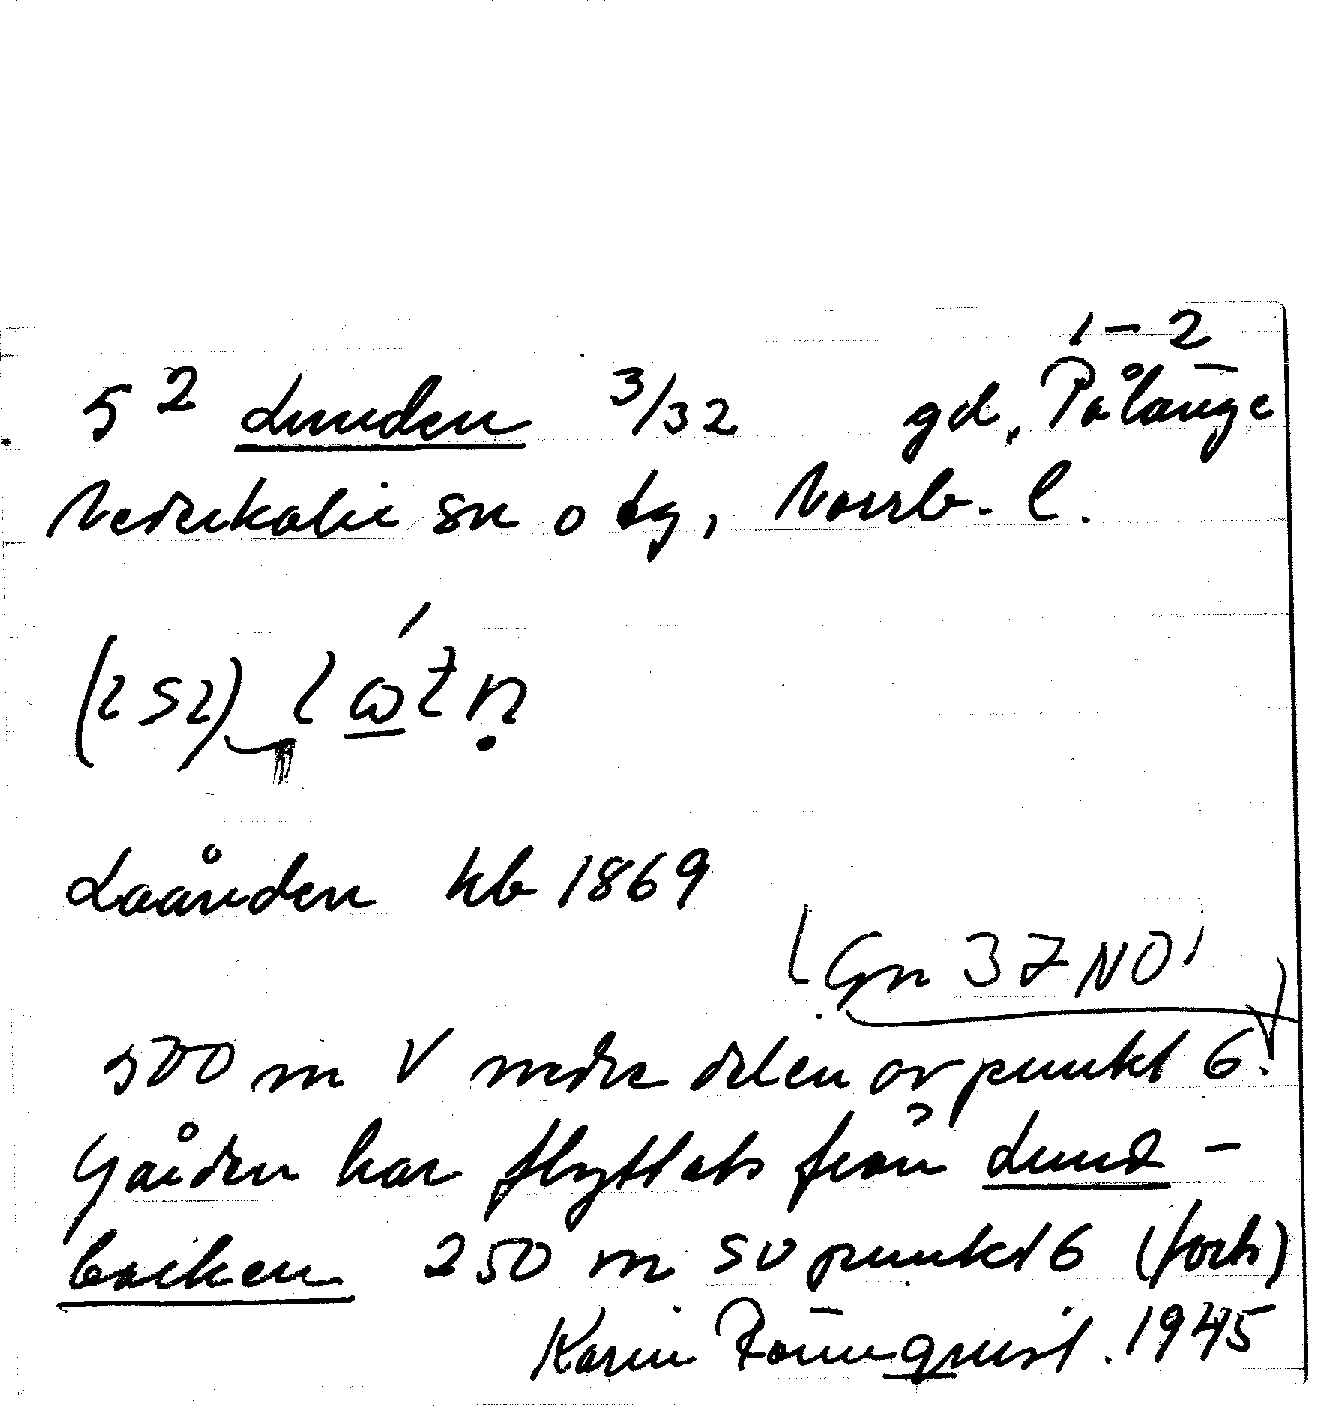 1-2
5² Lunden 3/32 gd, Pålänge
Nederkalix sn o tg, Norrb. l.
Laånden kb 1869
Gn 37 NO
500 m V nedre delen av punkt 6.
Gården har flyttats från Lund-
backen 250 m SV punkt 6 (forts)
Karin Rönnquist. 1945